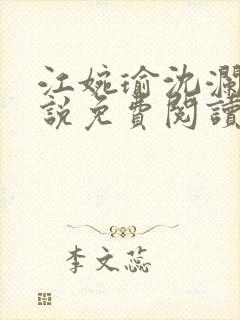 江婉瑜沈瀾
說免費閱讀
李文蕊